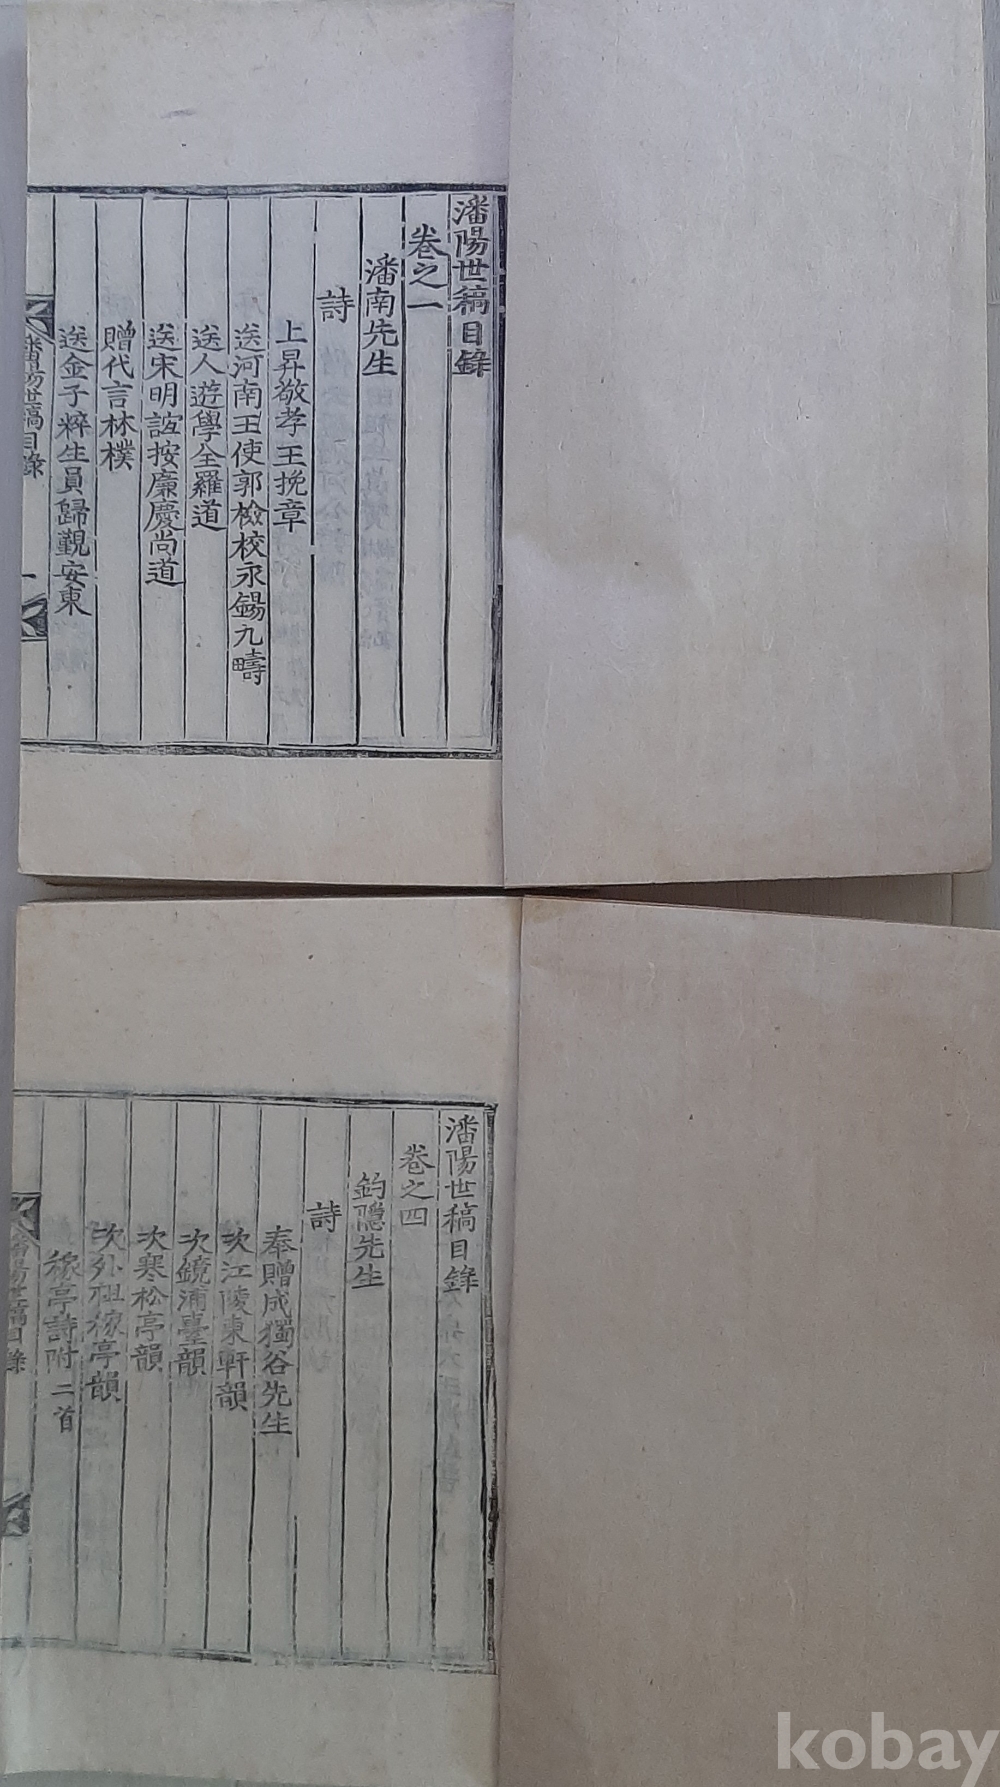 潘陽世稿目錄
卷之一
潘南先生
詩
上昇敬孝王挽章
送河南王使郭檢校永錫九疇
送人遊學全羅道
送宋明誼按廉慶尙道
贈代言林樸
送金子粹生員歸覲安東
潘陽世稿目錄
一
潘陽世稿目錄
卷之四
釣隱先生
詩
奉贈成獨谷先生
次江陵東軒韻
次鏡浦臺韻
次寒松亭韻
次外祖稼亭韻
稼亭詩附二首
潘陽世稿目錄
kobay